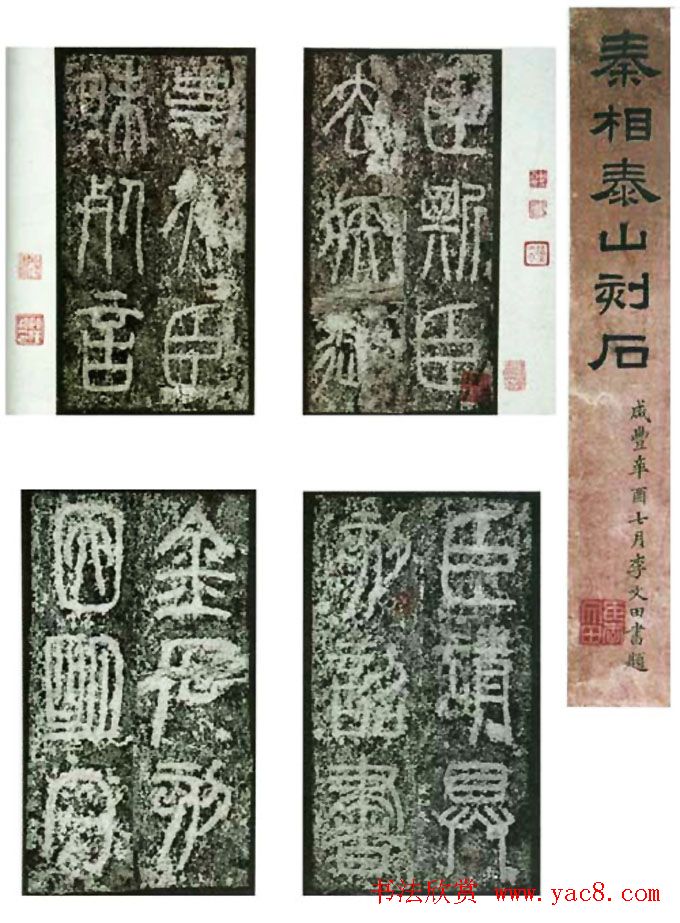 秦相泰山刻石
咸豐辛酉七月李文田書題
臣斯臣
去疾御
史夫臣
昧死言
臣請具
刻詔書
金石刻
因明白
书法欣赏 www.yac8.com